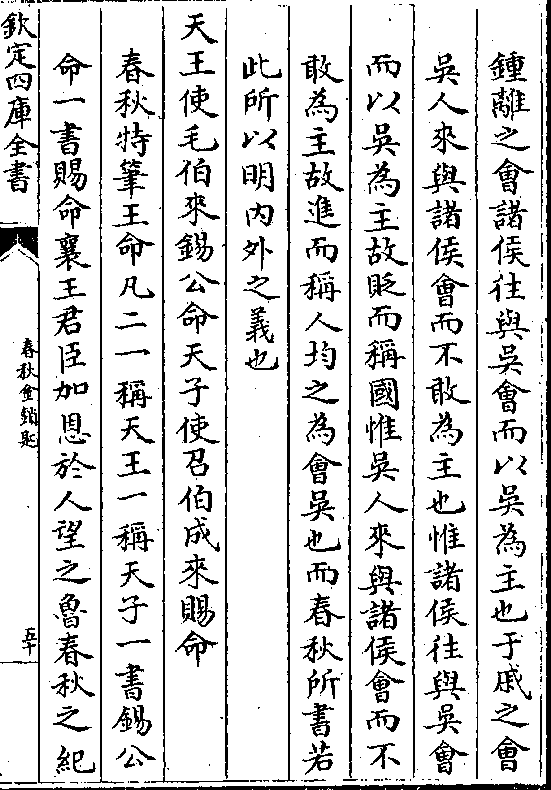 鍾離之會諸侯往與吳會而以吳為主也于戚之會
吳人來與諸侯會而不敢為主也惟諸侯往與吳會
而以吳為主故貶而稱國惟吳人來與諸侯會而不
敢為主故進而稱人均之為會吳也而春秋所書若
此所以明內外之義也
天王使毛伯來錫公命天子使召伯成來賜命
春秋特筆王命凡二一稱天王一稱天子一書錫公
命一書賜命襄王君臣加恩於人望之魯春秋之紀
欽定四庫全書
春秋金鎖匙
五十